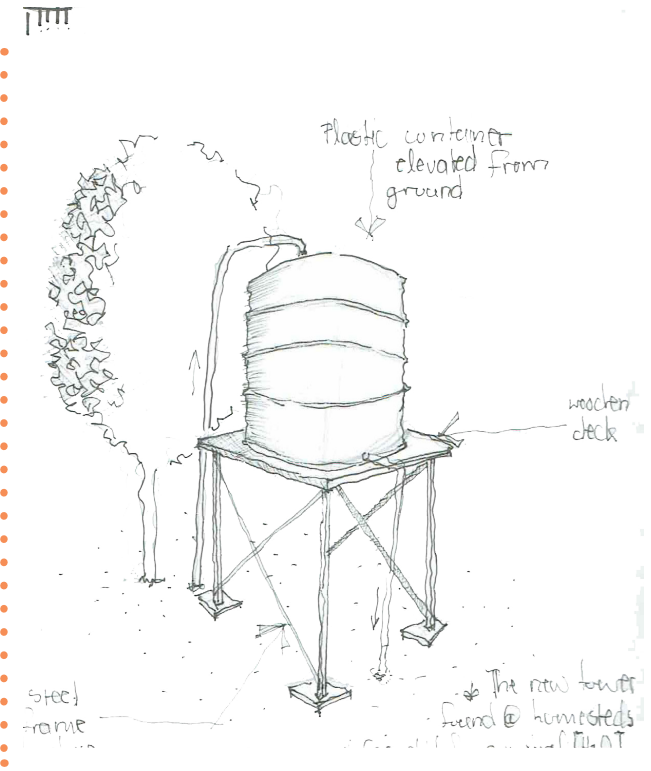 Plastic container
elevated from
ground
wooden
deck
steel
frame
The new tower
found @ homesteds